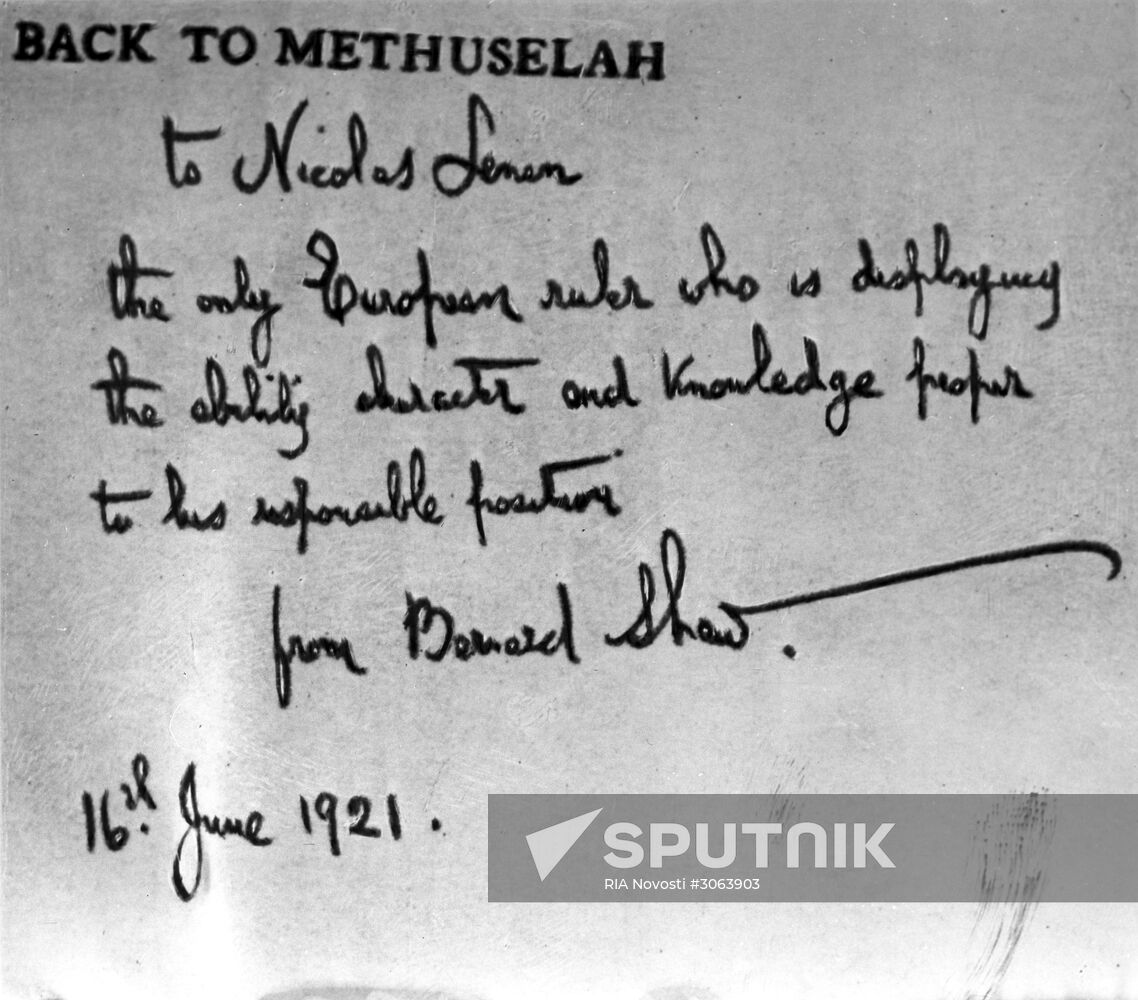 BACK TO METHUSELAH
to Nicolas Lenin
the only European ruler who is displaying
the ability character and knowledge proper
to his responsible position
from Bernard Shaw.
16th. June 1921.
SPUTNIK
RIA Novosti #3063903